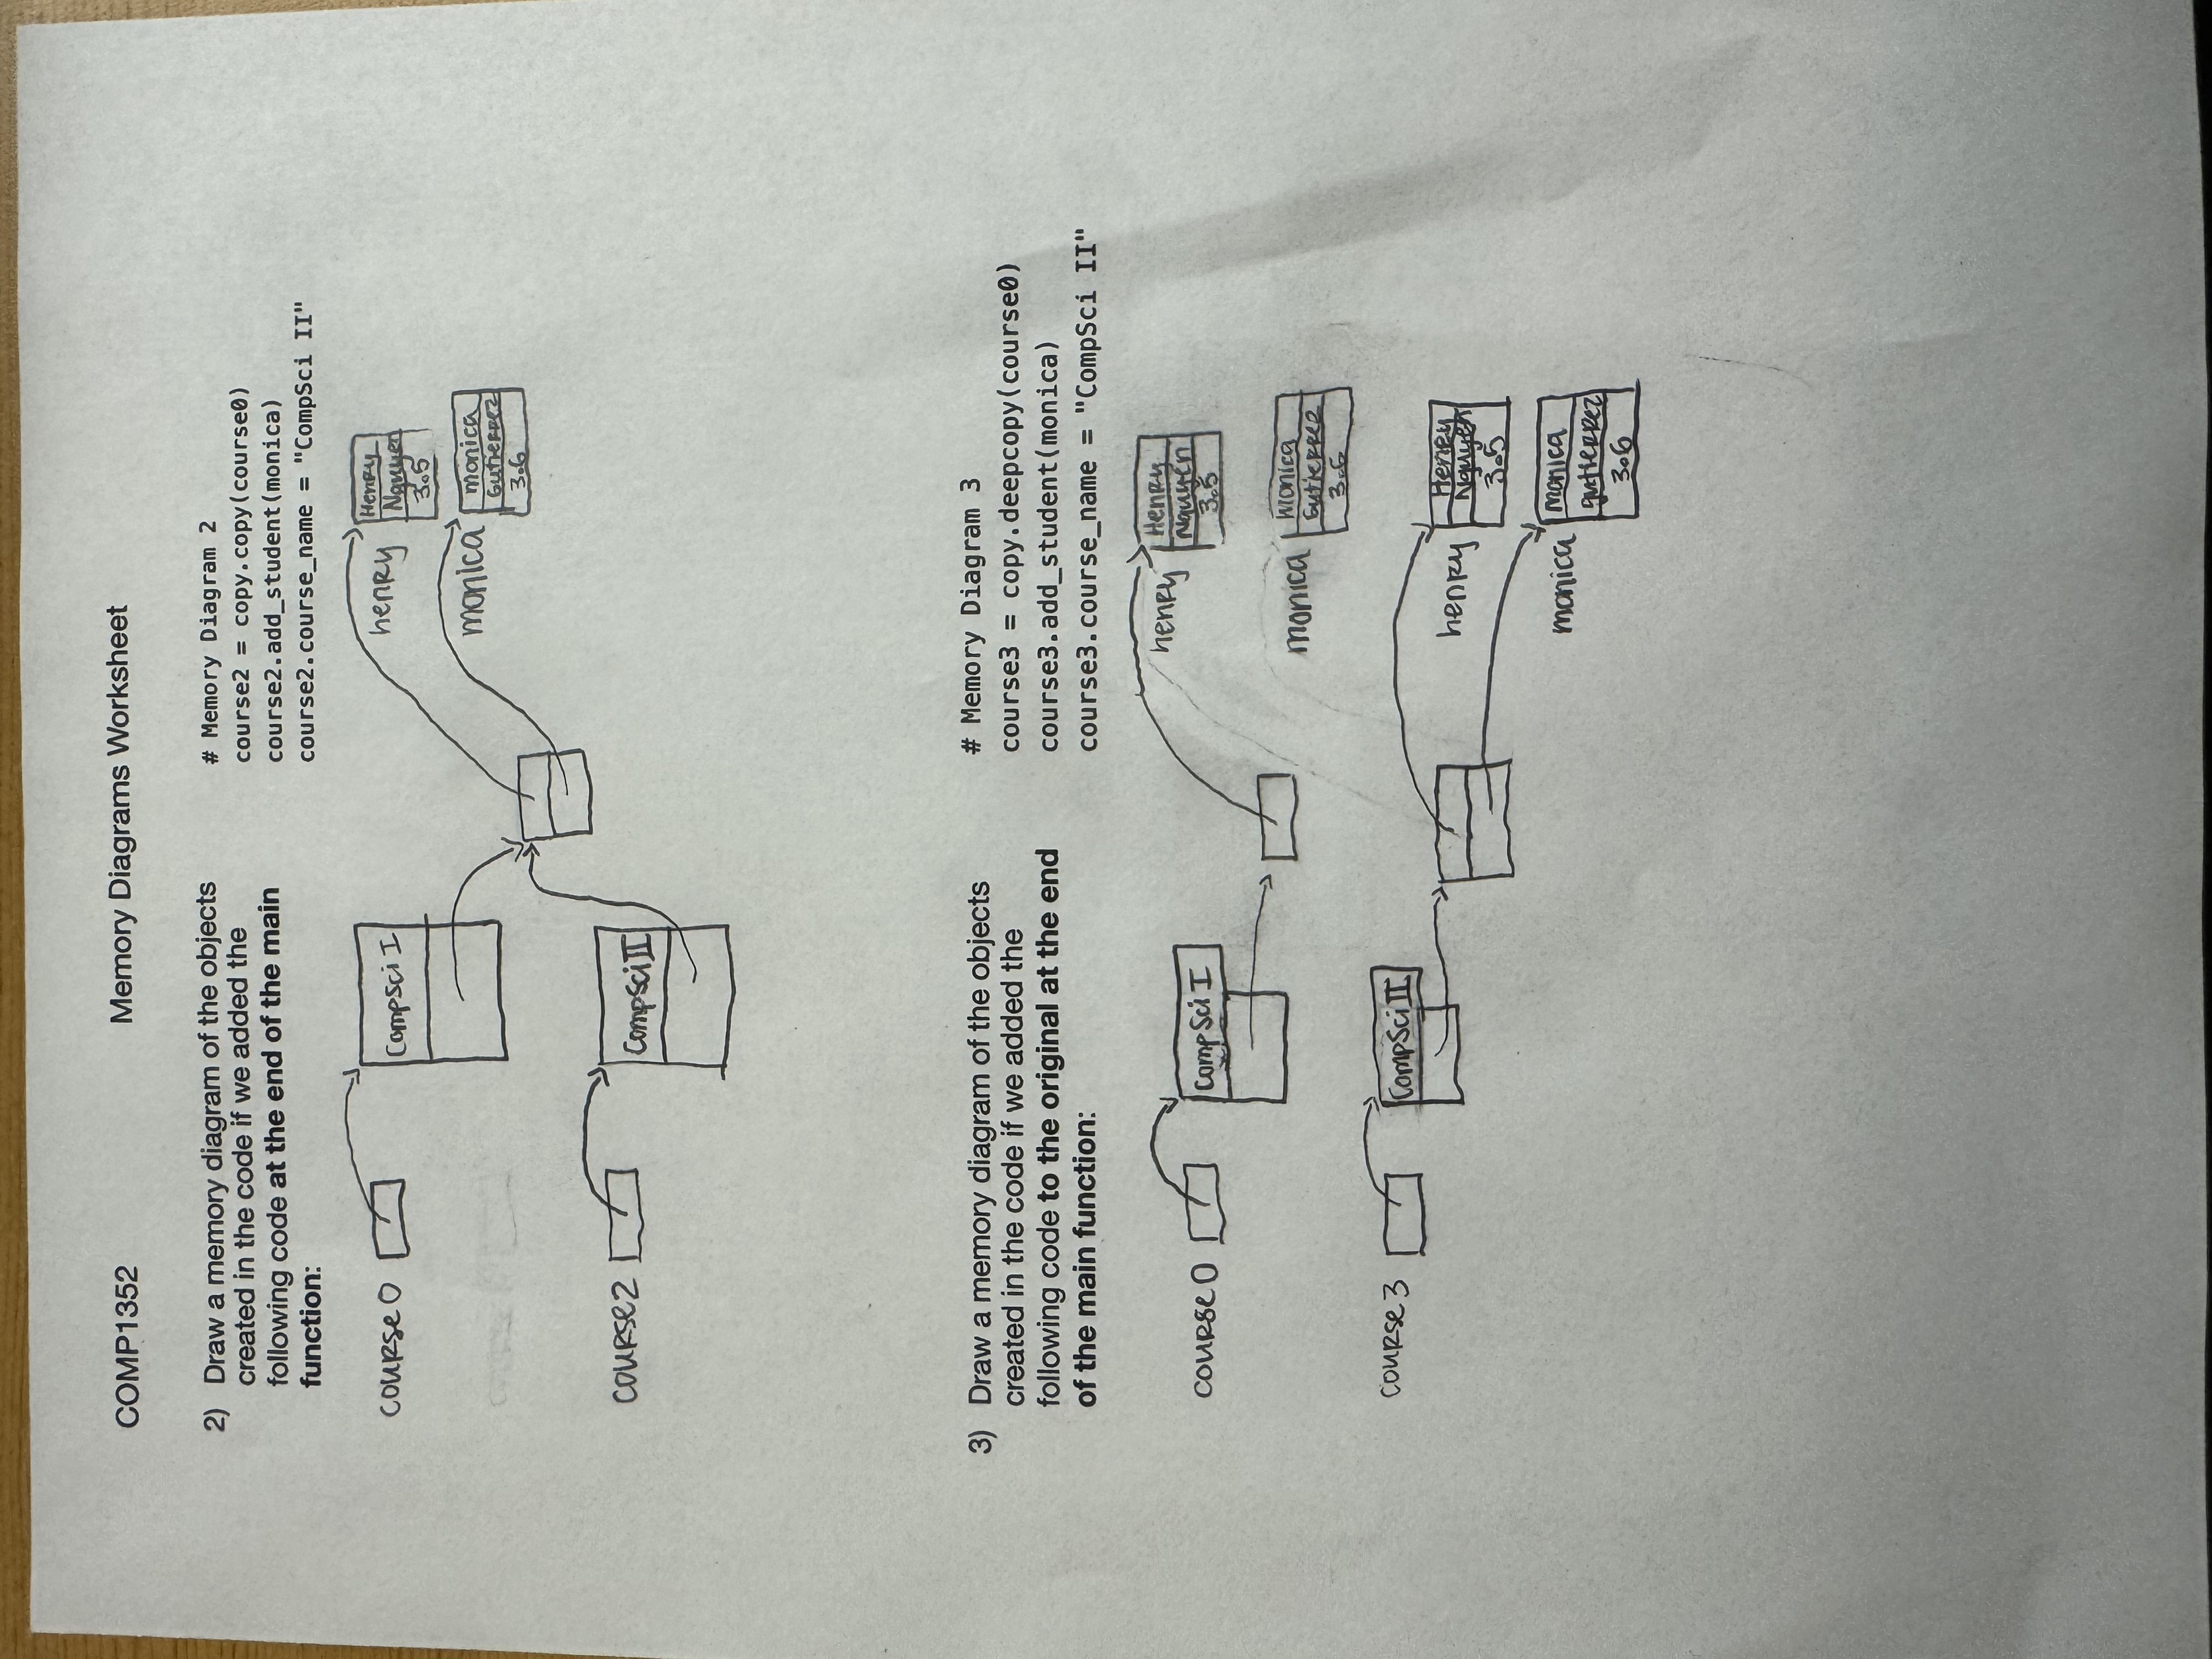 COMP1352 Memory Diagrams Worksheet
2) Draw a memory diagram of the objects
created in the code if we added the
following code at the end of the main
function:
# Memory Diagram 2
course2 = copy.copy(course0)
course2.add_student(monica)
course2.course_name = "CompSci II"
course0
CompSci I
henry
Henry
Nguyen
3.5
monica
monica
Gutierrez
3.6
course2
CompSci II
3) Draw a memory diagram of the objects
created in the code if we added the
following code to the original at the end
of the main function:
# Memory Diagram 3
course3 = copy.deepcopy(course0)
course3.add_student(monica)
course3.course_name = "CompSci II"
course0
CompSci I
henry
Henry
Nguyen
3.5
monica
monica
Gutierrez
3.6
course3
CompSci II
henry
Henry
Nguyen
3.5
monica
monica
gutierrez
3.6